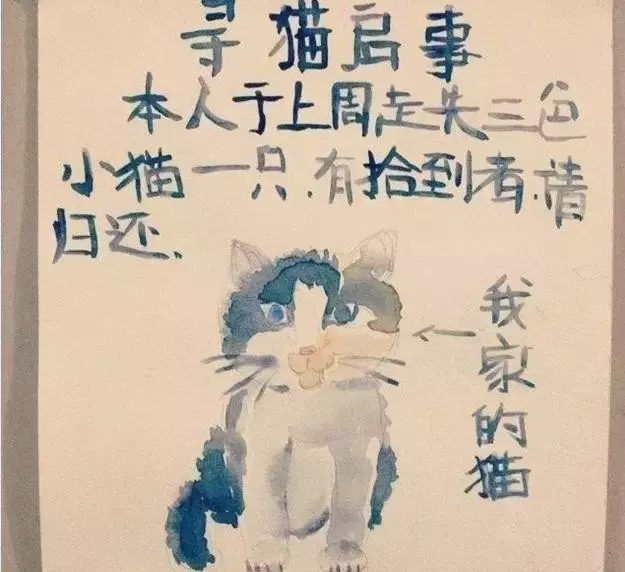 寻猫启事
本人于上周走失三色
小猫一只.有拾到者.请
归还.
我家的猫